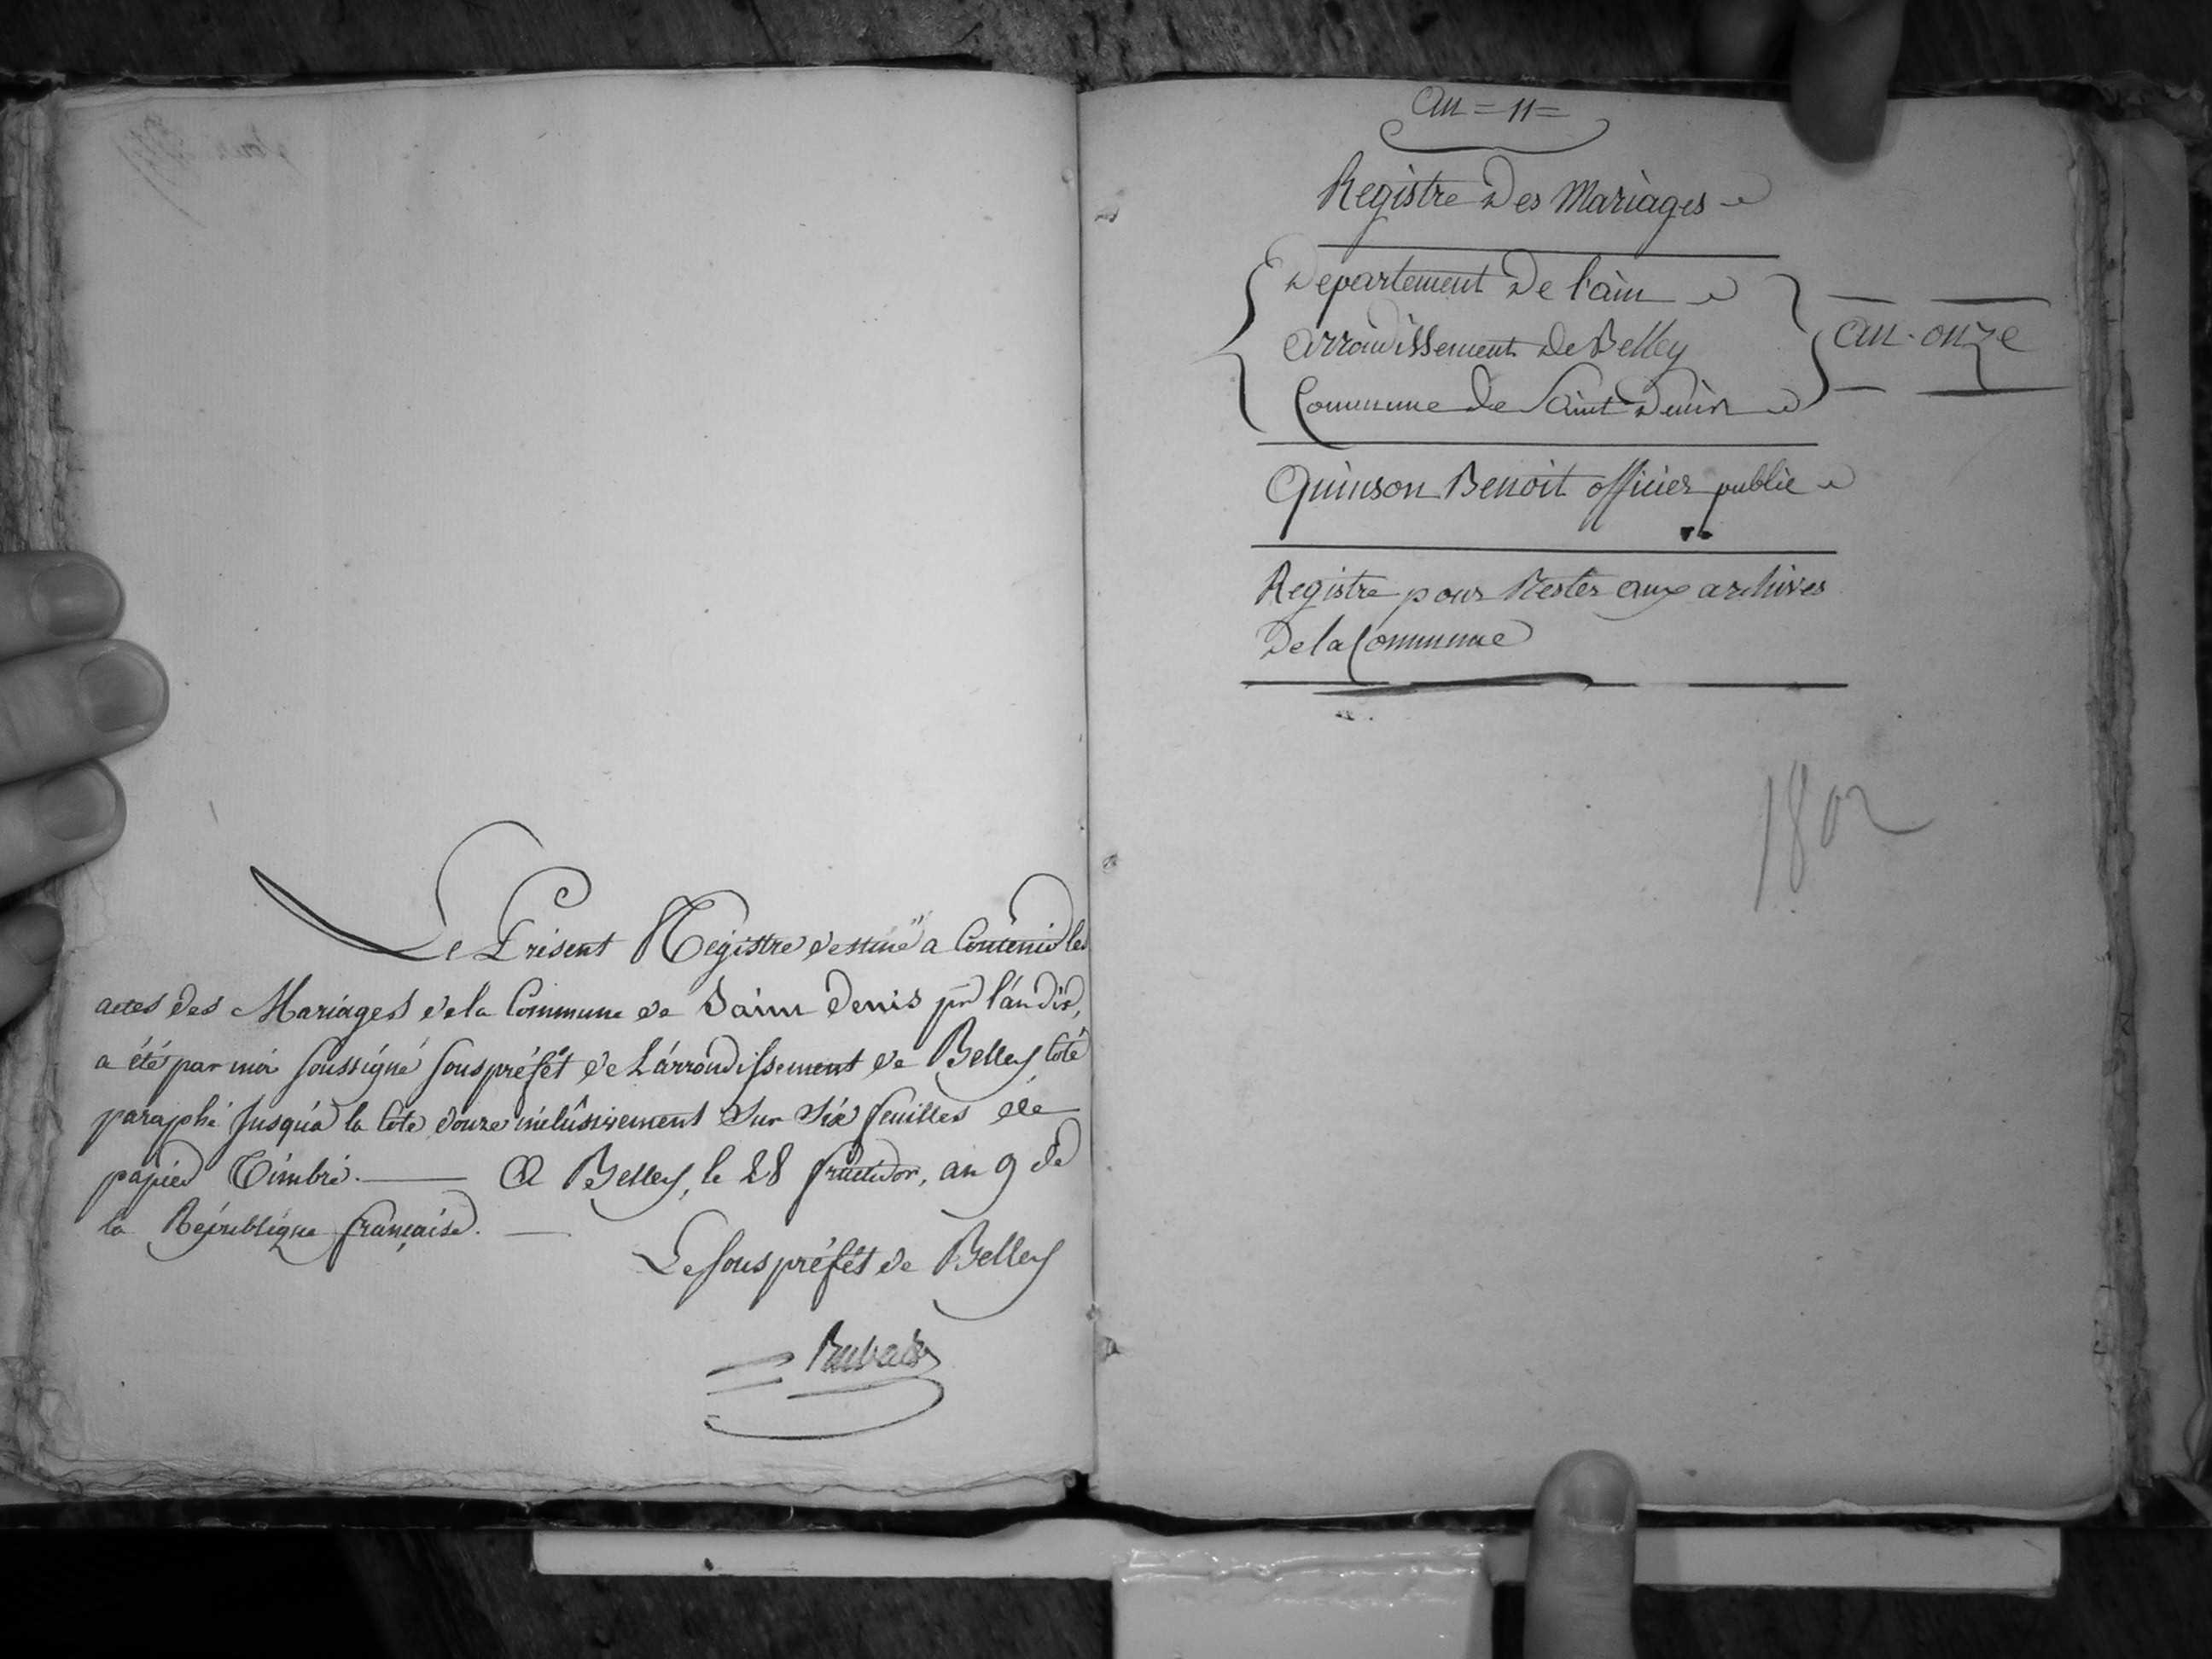 Le Présent Registre destiné a Contenir les
actes des Mariages de la Commune de Saint Denis pr l'an dix,
a été par moi soussigné souspréfêt de L'arrondissement de Belley, coté
paraphé jusqu'a la cote douze inclusivement sur six feuilles de
papier Timbré. — A Belley, le 28 fructidor, an 9 de
la République française. —
Le souspréfêt de Belley
an = 11 =
Registre Des Mariages
Departement De l'ain
arrondissement De Belley
Commune De Saint Denis
an onze
Quinson Benoit officier public
Registre pour Rester aux archives
De la Commune
1802